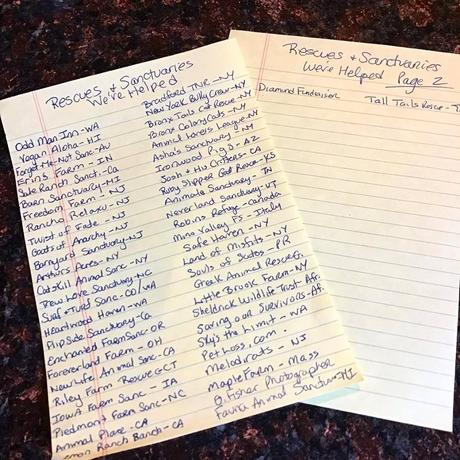 Rescues + Sanctuaries
We've Helped
Odd Man Inn-WA
Vegan Aloha-HI
Forget Me Not Sanc-
Erin's Farm-IN
Sale Ranch Sanct.-Ca
Barn Sanctuary-MI
Freedom Farm, NJ
Rancho Relaxo-NJ
Twist of Fade-NJ
Goats of Anarchy-NJ
Barnyard Sanctuary-NJ
Arthurs Acres-NY
Catskill Animal Sanc-NY
Paw Love Sanctuary-NC
Surf + Turf Sanc-CO/WA
Heartwood Haven-WA
Flip Side Sanctuary-Ca
Enchanted Farm Sanc-OR
Foreverland Farm-OH
New Life Animal Sanc-CA
Riley Farm-Rescue CT
Iowa Farm Sanc-IA
Piedmont Farm Sanc-NC
Animal Place-CA
Ranch-CA
Bradford TNR-NY
New York Bully Crew-NY
Bronx Tails Cat Rescue-NY
Bronx Colony Cats-NY
Animal Lovers League-NY
Asha's Sanctuary-NY
Ironwood Pigs-AZ
Sosh + His Critters-CA
Ruby Slipper Goat Rescue-KS
Animata Sanctuary-TN
Neverland Sanctuary-VT
Robins Refuge-Canada
Mino Valley FS-Italy
Safe Haven-NY
Land of Misfits-NY
Souls of Scates-PR
Greek Animal Rescue
Little Brook Farm-NY
Sheldrick Wildlife Trust Afr.
Saving our Survivors-Af.
Sky's the Limit-WA
PetLoss.com.
Melodirats-NJ
Maple Farm-Mass
G. Fisher Photographer
Animal Sanctuary HI
Rescues + Sanctuaries
We've Helped Page 2
Diamond Fundraiser
Tall Tails Rescue-